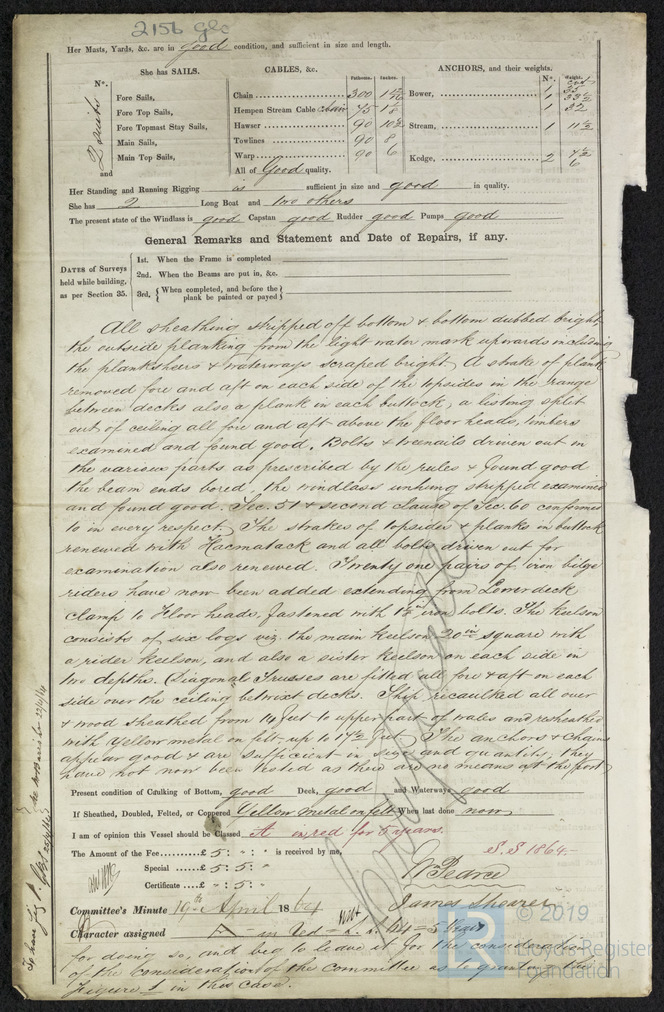 2156 Glo
Her Masts, Yards, &c. are in good condition, and sufficient in size and length.
She has SAILS.
CABLES, &c.
ANCHORS, and their weights.
N°.
Fathoms. Inches.
N°. Weight.
2 suits
Fore Sails,
Fore Top Sails,
Fore Topmast Stay Sails,
Main Sails,
Main Top Sails,
and
Chain 300
Hempen Stream Cable chain 75 1 1/8
Hawser 90 10 1/2
Towlines 90 8
Warp 90 6
All of Good quality.
Bower, 1
1 33 1/2
1 32
Stream, 1 11 1/2
Kedge, 2
6
Her Standing and Running Rigging is sufficient in size and good in quality.
She has 2 Long Boat and two others
The present state of the Windlass is good Capstan good Rudder good Pumps good
General Remarks and Statement and Date of Repairs, if any.
DATES of Surveys held while building, as per Section 35.
1st. When the Frame is completed
2nd. When the Beams are put in, &c.
3rd. When completed, and before the plank be painted or payed
All sheathing stripped off bottom & bottom dubbed bright,
the outside planking from the light water mark upwards including
the planksheers & waterways scraped bright. A strake of plank
removed fore and aft on each side of the topsides in the range
between decks also a plank in each buttock, a listing split
out of ceiling all fore and aft above the floor heads, timbers
examined and found good. Bolts & treenails driven out in
the various parts as prescribed by the rules & found good
the beam ends bored. the windlass unhung stripped examined
and found good. Sec. 51 & second clause of Sec. 60 conformed
to in every respect. The strakes of topsides & planks in buttock
renewed with Hacmatack and all bolts driven out for
examination also renewed. Twenty one pairs of iron bilge
riders have now been added extending from Lower deck
clamp to Floor heads, fastened with iron bolts. The Keelson
consists of six logs viz. the main Keelson 20 in square with
a rider Keelson, and also a sister Keelson on each side in
two depths. Diagonal Trusses are fitted all fore & aft on each
side over the ceiling betwixt decks. Ship recaulked all over
& wood sheathed from 14 feet to upper part of wales and resheathed
with Yellow metal on felt up to 17 1/2 feet. The anchors & Chains
appear good & are sufficient in size and quantity, they
have not now been tested as there are no means at the port
Present condition of Caulking of Bottom, good Deck, good and Waterways good
If Sheathed, Doubled, Felted, or Coppered Yellow Metal on felt When last done now
I am of opinion this Vessel should be Classed A in red for 5 years.
S.S 1864.
The Amount of the Fee £ 5 : " : " is received by me,
Special £ 5 : " :
Certificate £ " : 5 : "
Wm Pearce
James Shearer
Committee's Minute 19th April 1864
Character assigned A in Red
for doing so, and beg to leave it for the consideration
of the consideration of the committee as to granting the
Figure 1 in this case.
© 2019
Lloyd's Register
Foundation